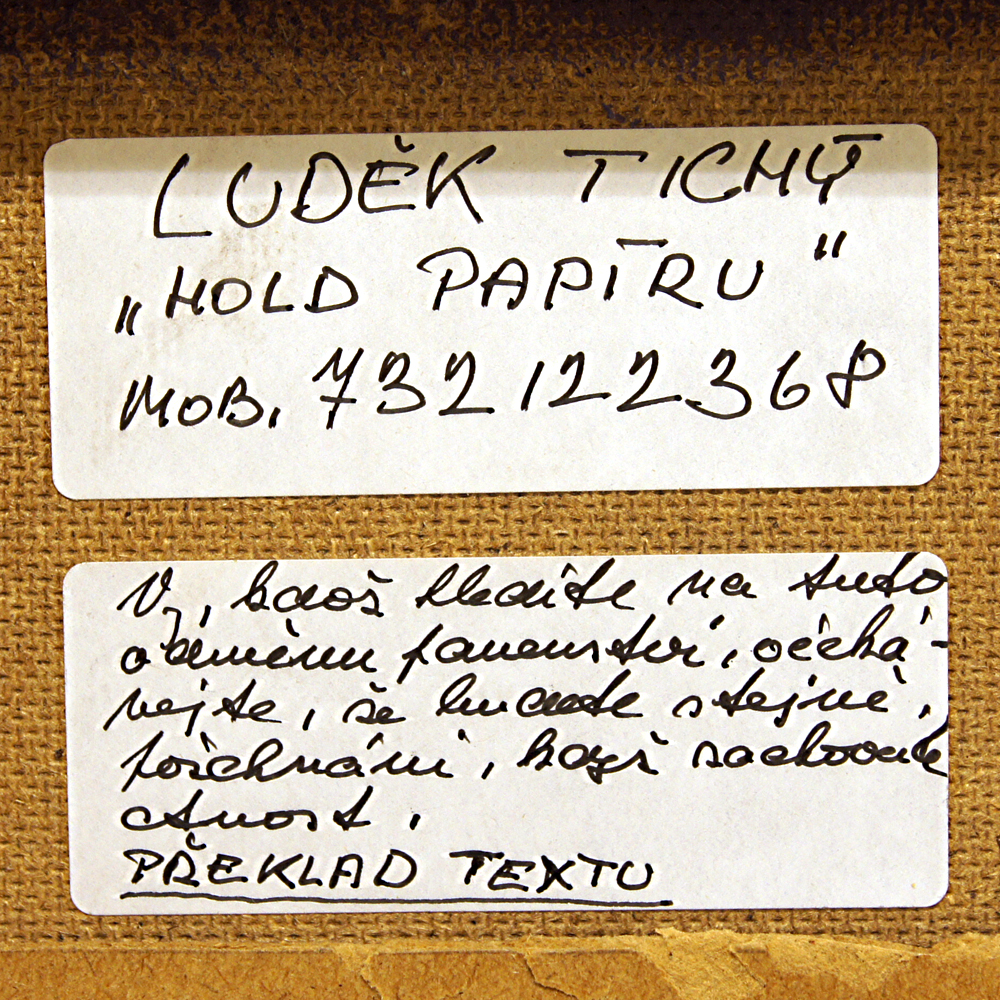 LUDĚK TICHÝ
„HOLD PAPÍRU“
MOB. 732122368
Vy, kdož hledíte na tuto
odměnu panenství, očeká-
vejte, že budete stejně
požehnáni, když zachováte
ctnost.
PŘEKLAD TEXTU